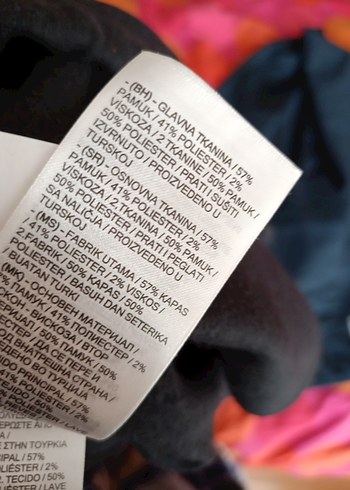 - (BH) - GLAVNA TKANINA / 57%
PAMUK / 41% POLIESTER / 2%
VISKOZA / 2 TKANINE / 50% PAMUK /
50% POLIESTER / PRATI SUŠITI
IZVRNUTO / PROIZVEDENO U
TURSKOJ
- (SR) - OSNOVNA TKANINA / 57%
PAMUK / 41% POLIESTER / 2%
VISKOZA / 2 TKANINA / 50% PAMUK /
50% POLIESTER / PRATI PEGLATI
SA NALIČJA / PROIZVEDENO U
TURSKOJ
- (MS) - FABRIK UTAMA / 57% KAPAS
/ 41% POLIESTER / 2% VISKOS /
2.FABRIK / 50% KAPAS / 50%
POLIESTER / BASUH DAN SETERIKA
BUATAN TURKI
(MK) - ОСНОВЕН МАТЕРИЈАЛ /
ПАМУК / 41% ПОЛИЕСТЕР / 2%
ВИСКОЗА / ВТОР
50% ПАМУК / 50%
/ ДА СЕ ПЕРЕ И
ВНАТРЕШНА СТРАНА /
ВО ТУРЦИЈА
PRINCIPAL / 57%
POLIÉSTER / 2%
TECIDO / 50%
POLIÉSTER /
ΣΤΗΝ ΤΟΥΡΚΙΑ
/ 57%
/ 2%
2. TECIDO / 50%
/ LAVE